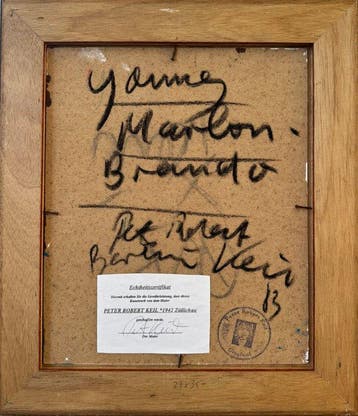 young
Marlon
Brando
Robert
Keil
83
Echtheitszertifikat
Hiermit erhalten Sie die Gewährleistung, dass dieses
Kunstwerk von dem Maler
PETER ROBERT KEIL *1942 Züllichau
geschaffen wurde.
Der Maler